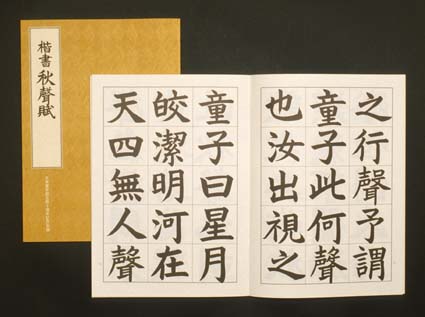 楷書 秋聲賦
之行聲予謂
童子此何聲
也汝出視之
童子曰星月
皎潔明河在
天四無人聲